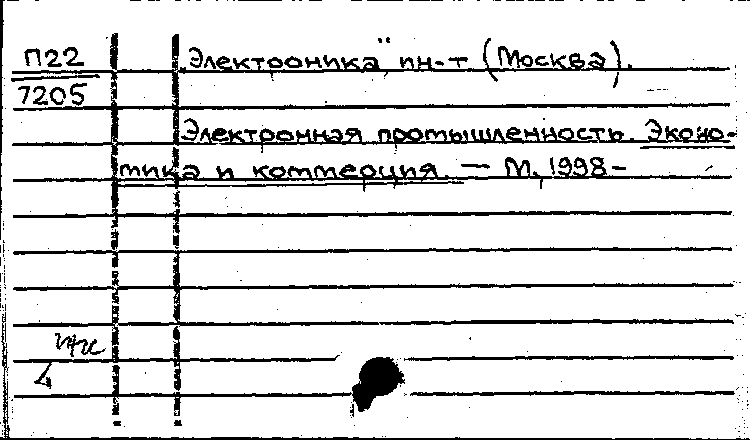 П22
7205
„Электроника“ ин-т (Москва).
Электронная промышленность. Эконо-
мика и коммерция. — М., 1998-